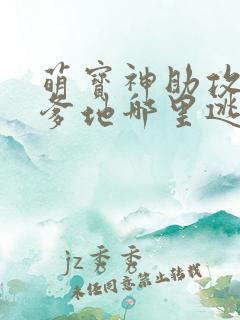 萌宝神助攻
爹地哪里逃
jz秀秀
未经同意禁止转载